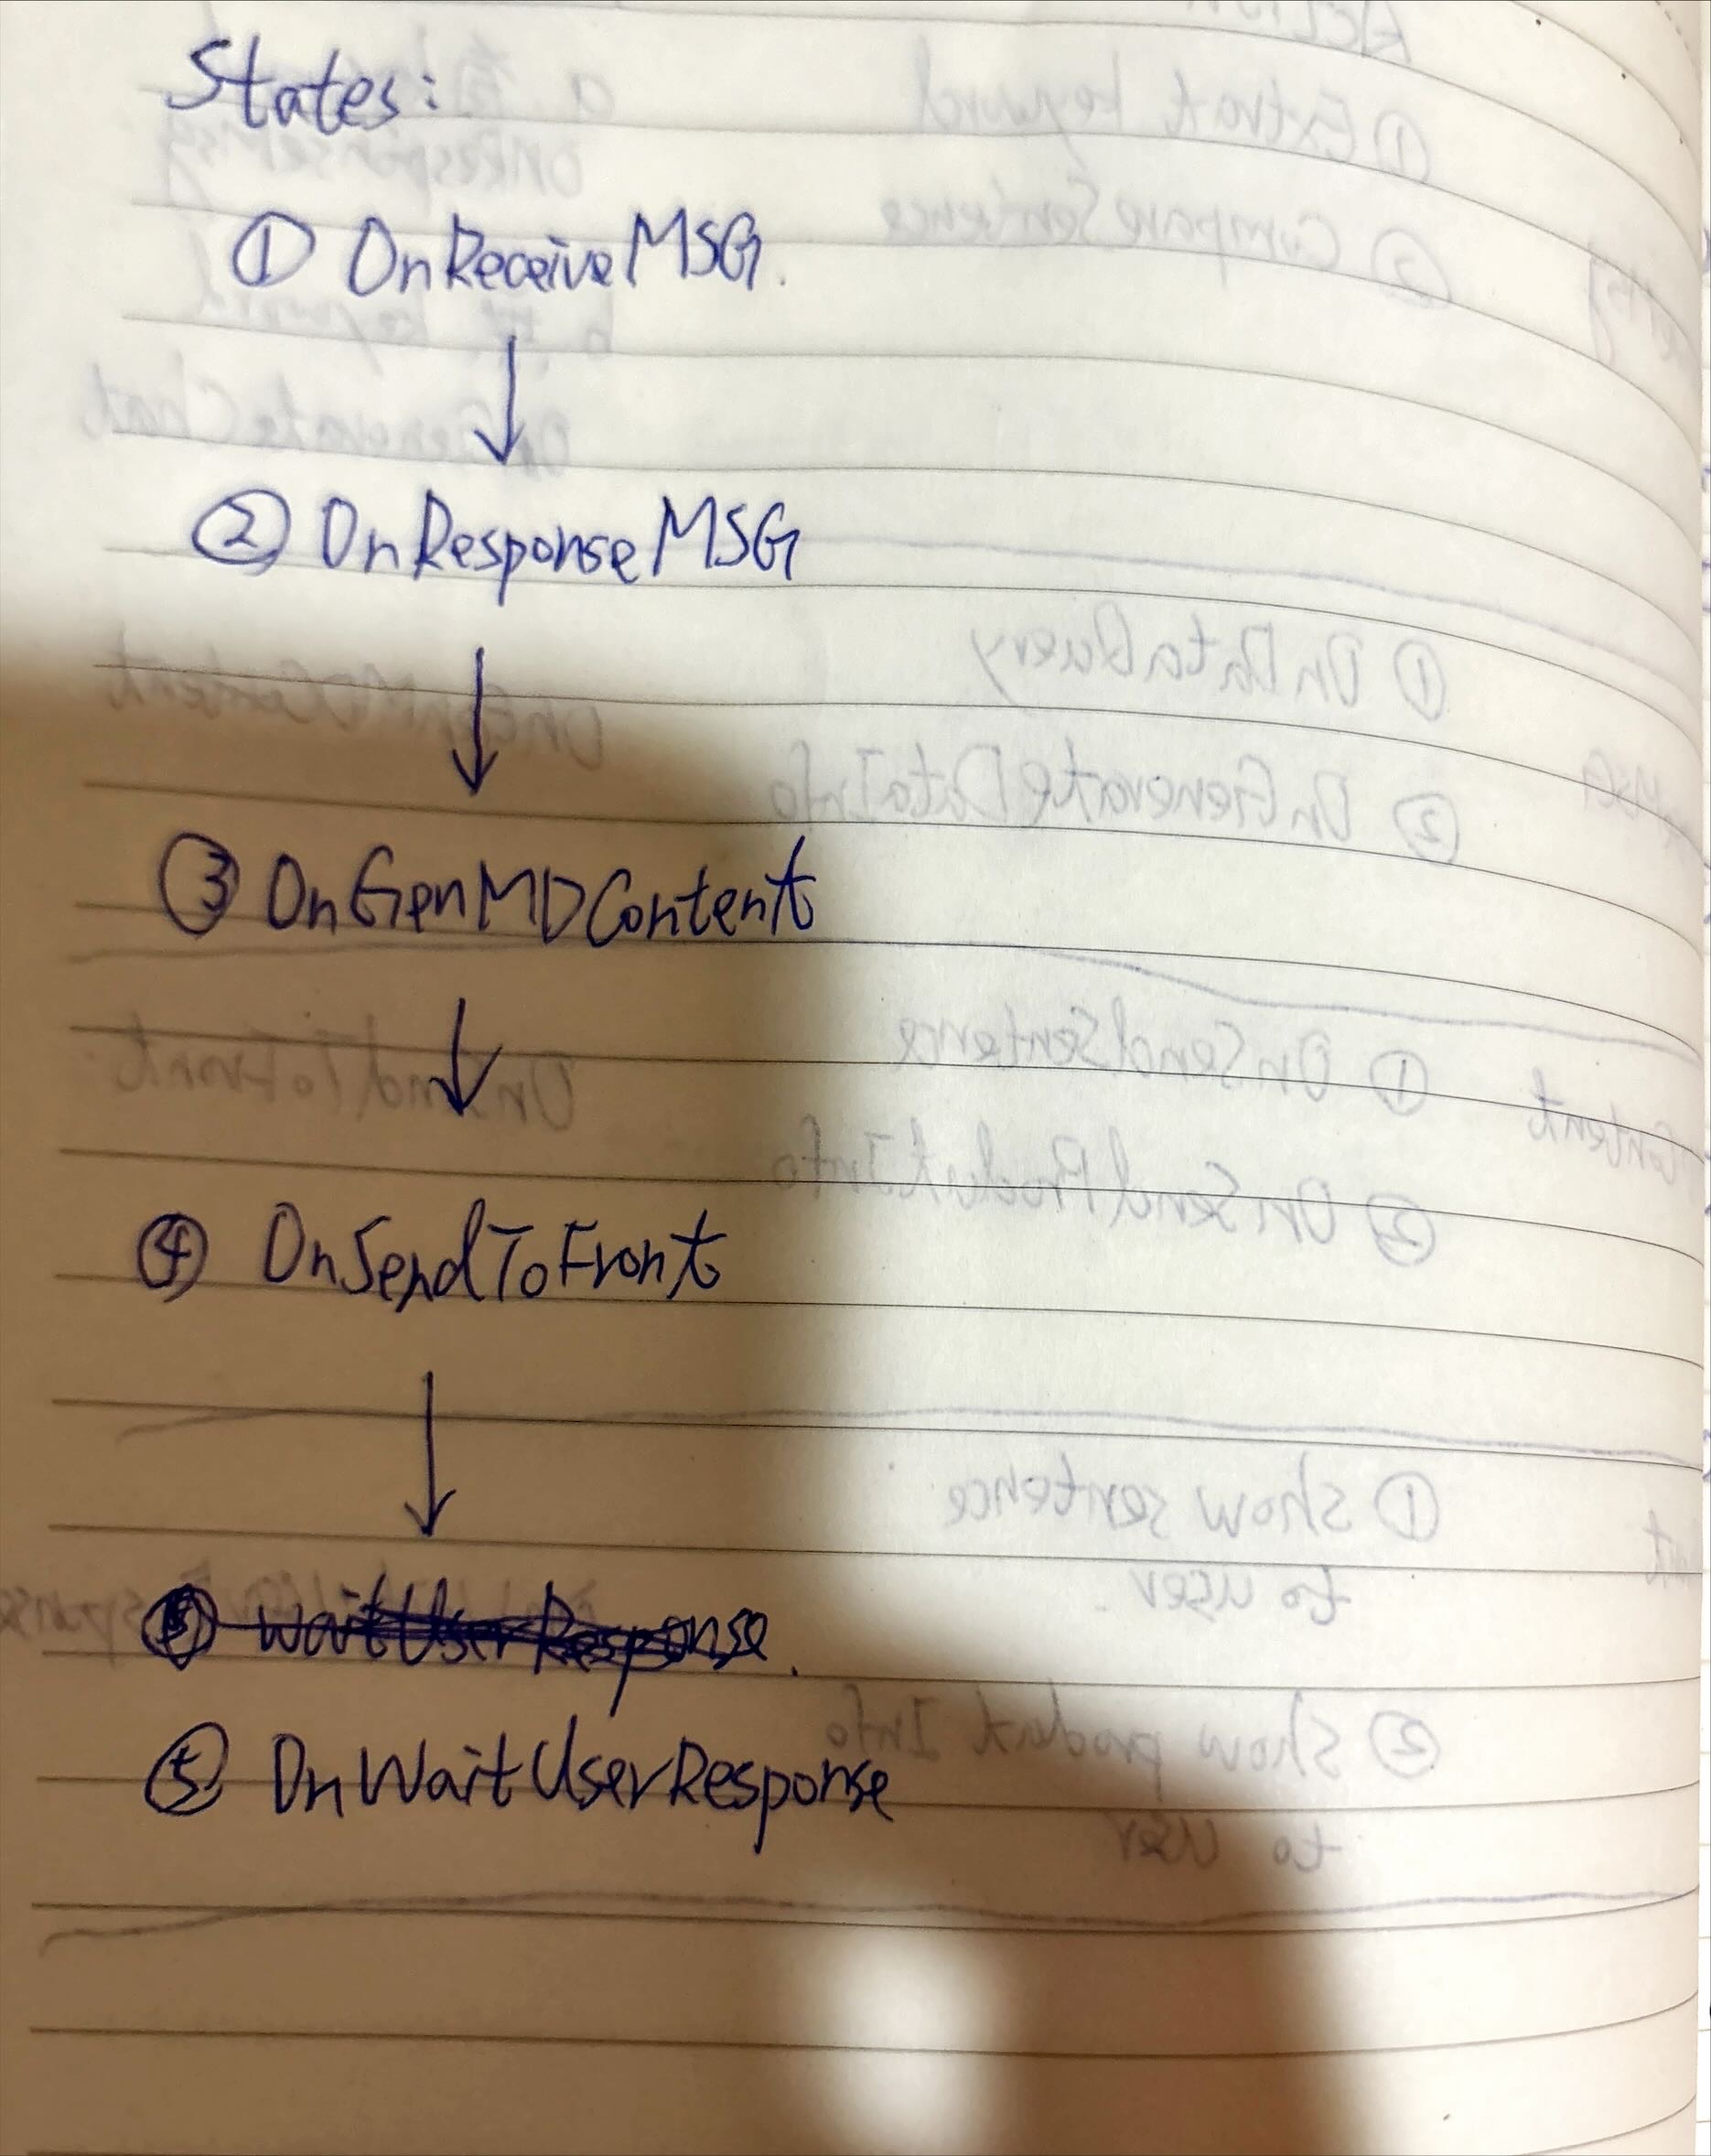 States:
① OnReceiveMSG.
↓
② OnResponseMSG
↓
③ OnGenMDContent
↓
④ OnSendToFront
↓
⑤ WaitUserResponse.
⑤ OnWaitUserResponse